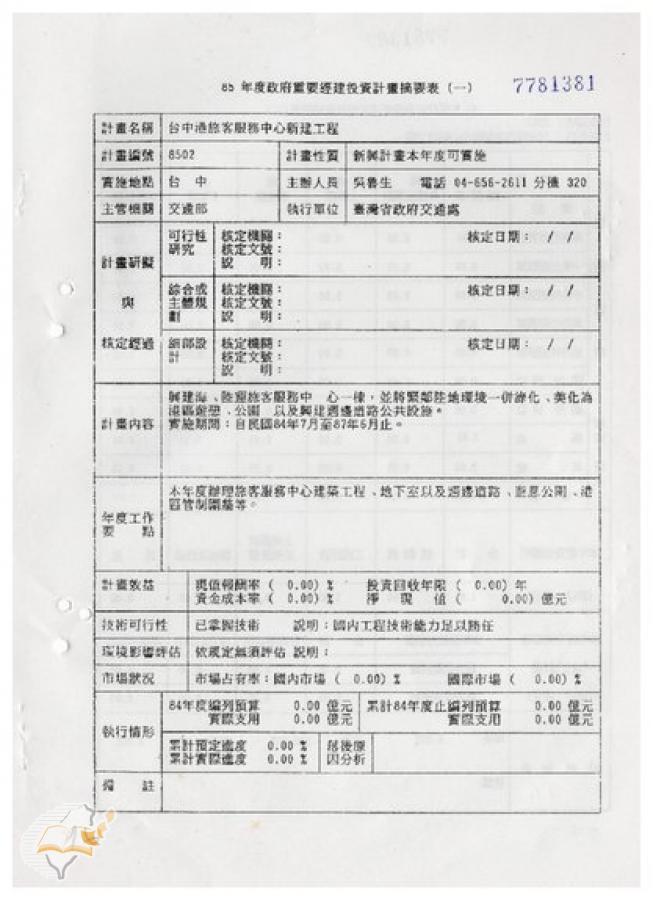 85 年度政府重要經建投資計畫摘要表 (一) 7781381
計畫名稱 台中港旅客服務中心新建工程
計畫編號 8502 計畫性質 新興計畫本年度可實施
實施地點 台 中 主辦人員 吳魯生 電話 04-656-2611 分機 320
主管機關 交通部 執行單位 臺灣省政府交通處
計畫研擬 與 核定經過
可行性研究 核定機關: 核定日期: / /
核定文號:
說 明:
綜合或主體規劃 核定機關: 核定日期: / /
核定文號:
說 明:
細部設計 核定機關: 核定日期: / /
核定文號:
說 明:
計畫內容 興建海、陸運旅客服務中 心一棟,並將緊鄰陸地環境一併綠化、美化為
港區遊憩、公園 以及興建週邊道路公共設施。
實施期間:自民國84年7月至87年6月止。
年度工作要 點 本年度辦理旅客服務中心建築工程、地下室以及週邊道路、遊憩公園、港
區管制圍牆等。
計畫效益 現值報酬率 ( 0.00) % 投資回收年限 ( 0.00) 年
資金成本率 ( 0.00) % 淨 現 值 ( 0.00) 億元
技術可行性 已掌握技術 說明:國內工程技術能力足以勝任
環境影響評估 依規定無須評估 說明:
市場狀況 市場占有率:國內市場 ( 0.00) % 國際市場 ( 0.00) %
執行情形 84年度編列預算 0.00 億元 累計84年度止編列預算 0.00 億元
實際支用 0.00 億元 實際支用 0.00 億元
累計預定進度 0.00 % 落後原
累計實際進度 0.00 % 因分析
備 註